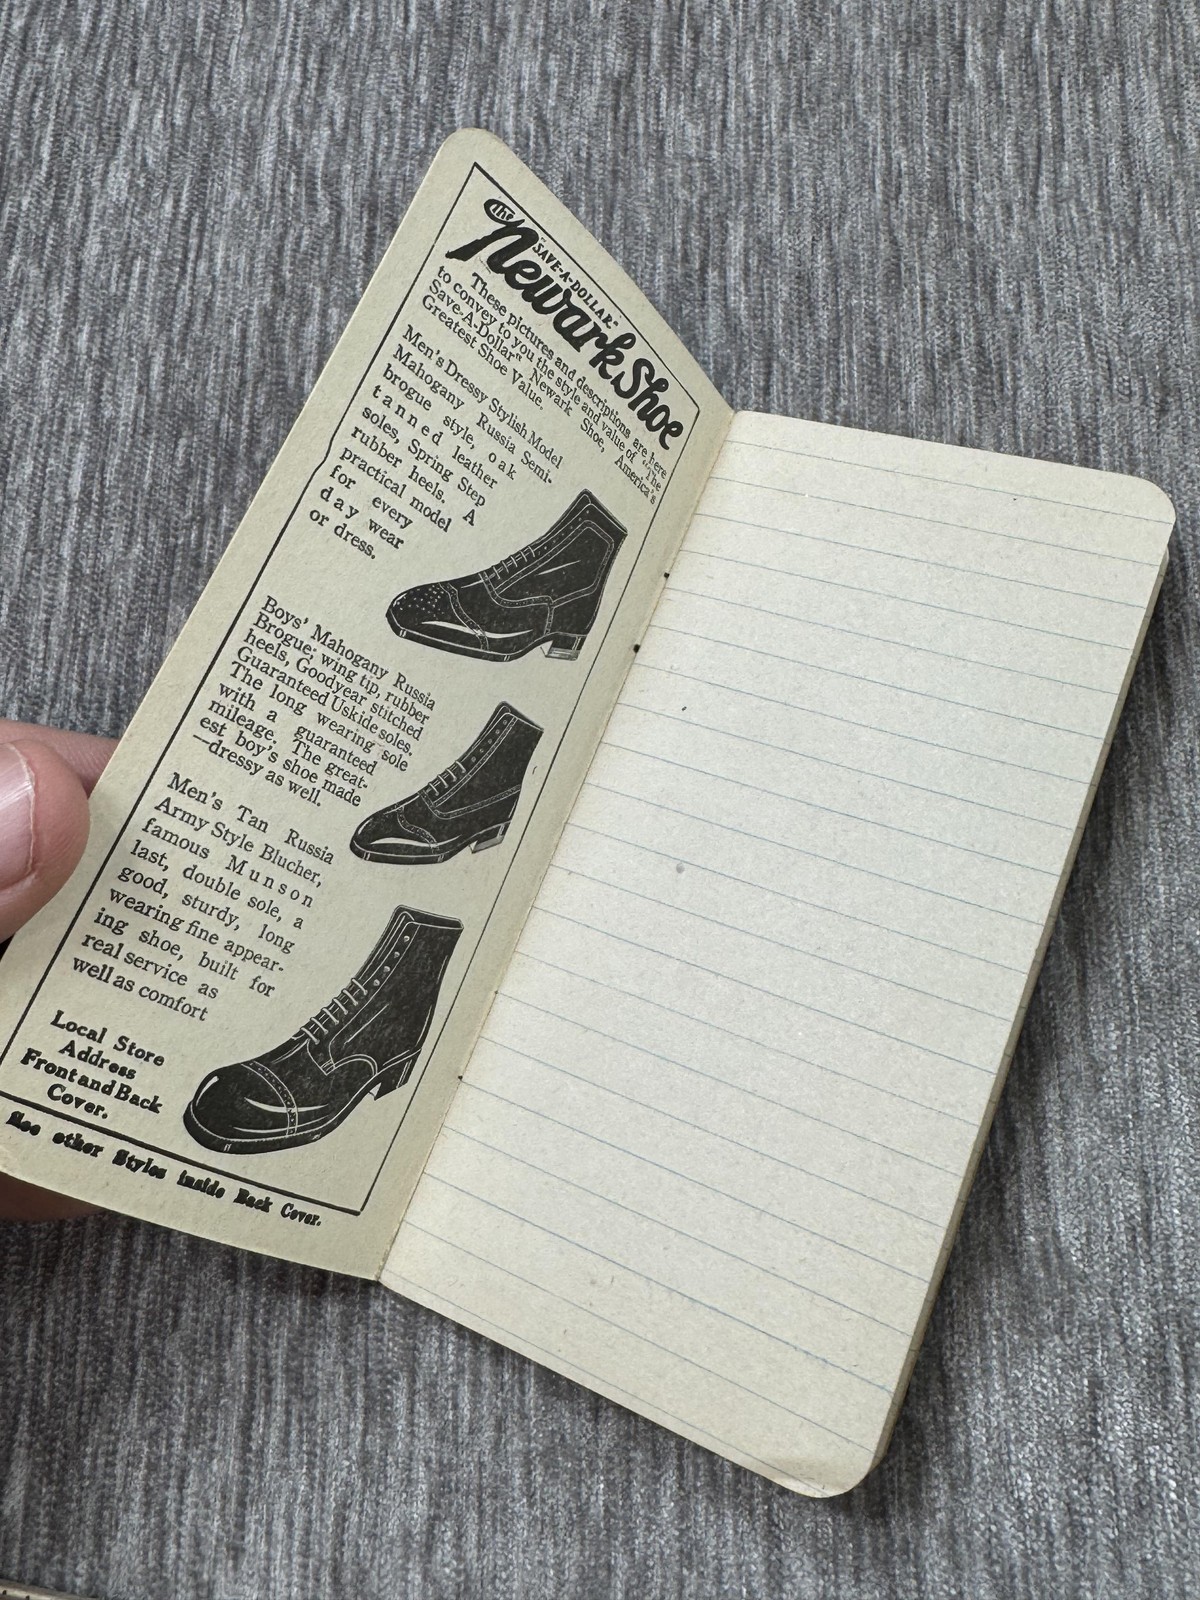 The
"SAVE-A-DOLLAR"
Newark Shoe
These pictures and descriptions are here
to convey to you the style and value of "The
Save-A-Dollar" Newark Shoe, America's
Greatest Shoe Value.
Men's Dressy Stylish Model
Mahogany Russia Semi-
brogue style, oak
tanned leather
soles, Spring Step
rubber heels. A
practical model
for every
day wear
or dress.
Boys' Mahogany Russia
Brogue; wing tip, rubber
heels, Goodyear stitched
Guaranteed Uskide soles.
The long wearing sole
with a guaranteed
mileage. The great-
est boy's shoe made
—dressy as well.
Men's Tan Russia
Army Style Blucher,
famous Munson
last, double sole, a
good, sturdy, long
wearing fine appear-
ing shoe, built for
real service as
well as comfort
Local Store
Address
Front and Back
Cover.
See other Styles inside Back Cover.